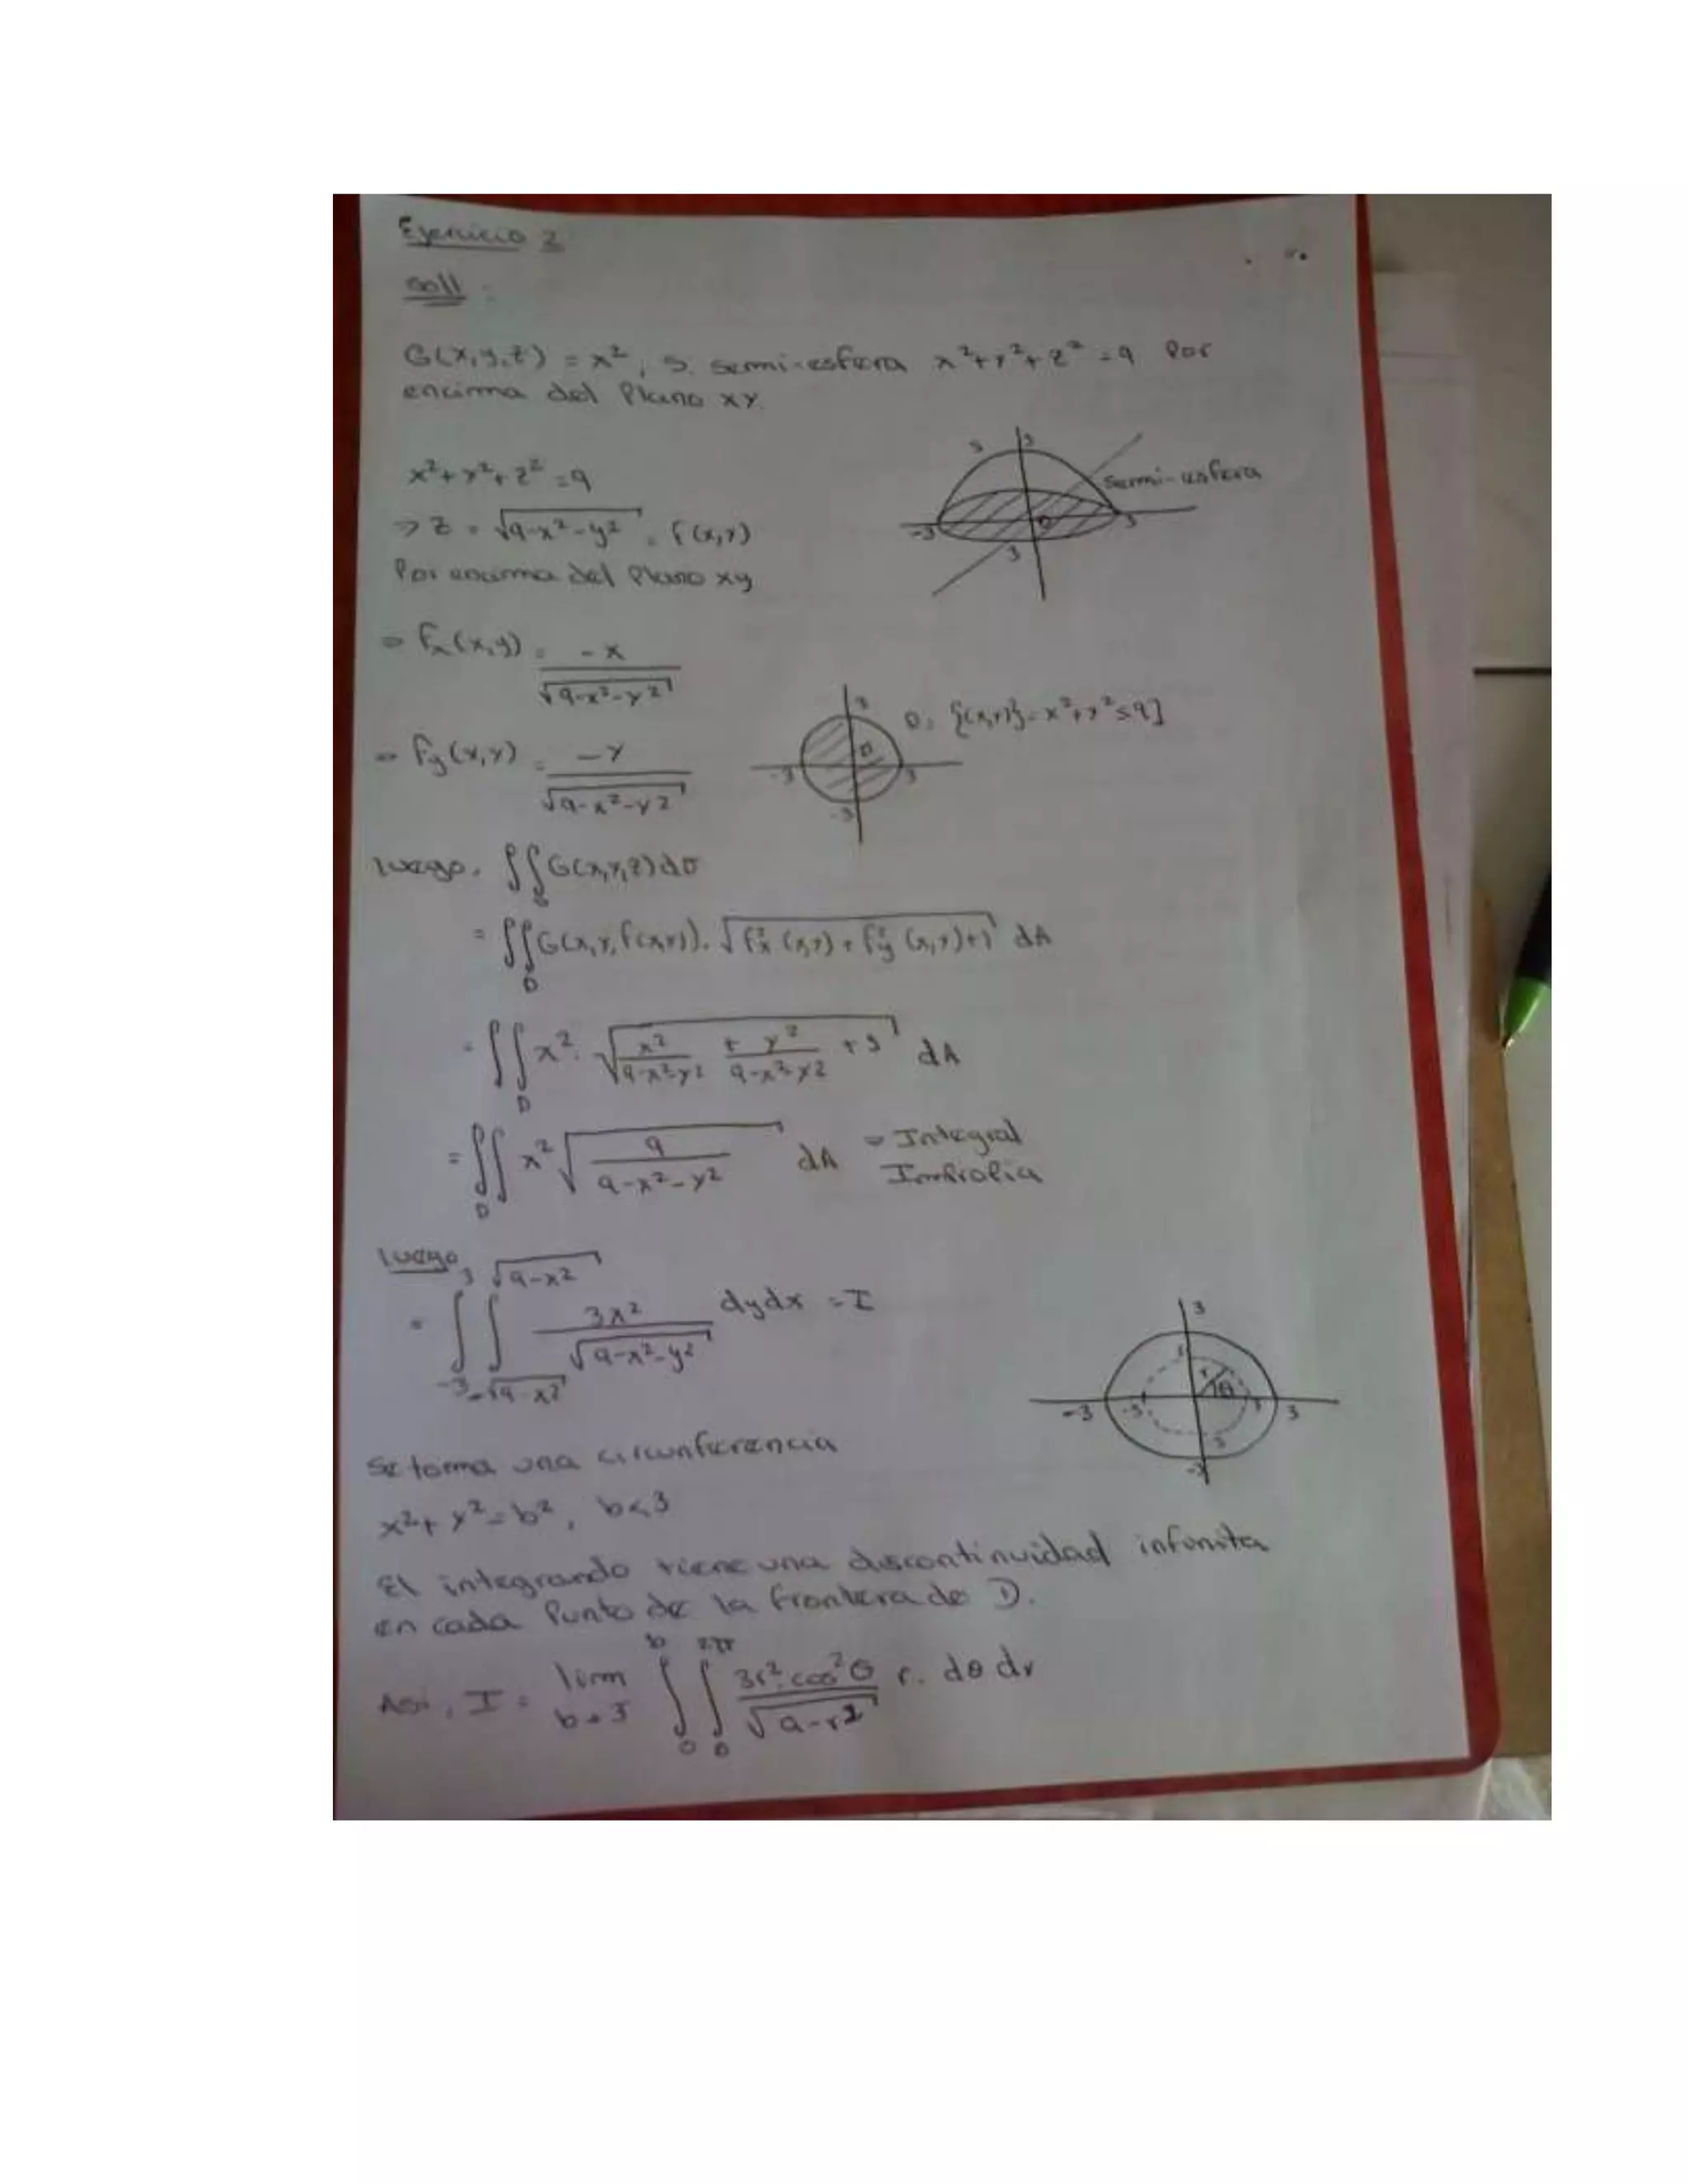 Ejercicio 2
soll:
G(x,y,z) = x², S. semi-esfera x²+y²+z²=9 Por
encima del Plano xy.
x²+y²+z²=9
⇒ z = √(9-x²-y²) = f(x,y)
Por encima del Plano xy
semi-esfera
3
-3
3
3
D
⇒ fx(x,y) = -x / √(9-x²-y²)
⇒ fy(x,y) = -y / √(9-x²-y²)
D: {(x,y)}= x²+y²≤9]
3
-3
3
-3
D
luego, ∬_S G(x,y,z)dσ
= ∬_D G(x,y,f(x,y)). √(fx²(x,y)+fy²(x,y)+1) dA
= ∬_D x². √(x²/(9-x²-y²) + y²/(9-x²-y²) + 1) dA
= ∬_D x² √(9/(9-x²-y²)) dA ⇒ Integral
Impropia
luego
= ∫_{-3}^{3} ∫_{-√(9-x²)}^{√(9-x²)} 3x² / √(9-x²-y²) dydx = I
3
-3
3
-3
r
θ
Se toma una circunferencia
x²+y²=b², b<3
El integrando tiene una discontinuidad infinita
en cada Punto de la frontera de D.
Asi, I = lim b→3 ∫_0^b ∫_0^{2π} 3r².cos²θ / √(9-r²) r. dθ dr